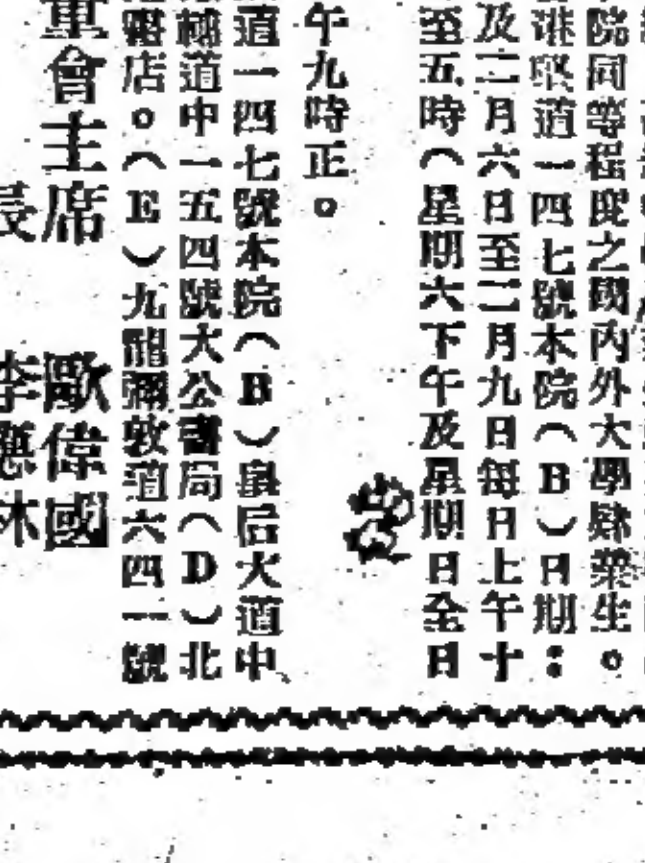 院同等程度之國內外大學肄業生。
港堅道一四七號本院（B）日期：
及二月六日至二月九日每日上午十
至五時（星期六下午及星期日全日
午九時正。
道一四七號本院（B）皇后大道中
道中一五四號大公書局（D）北
店。（E）九龍彌敦道六四一號
會主席 歐偉國
長 李應林